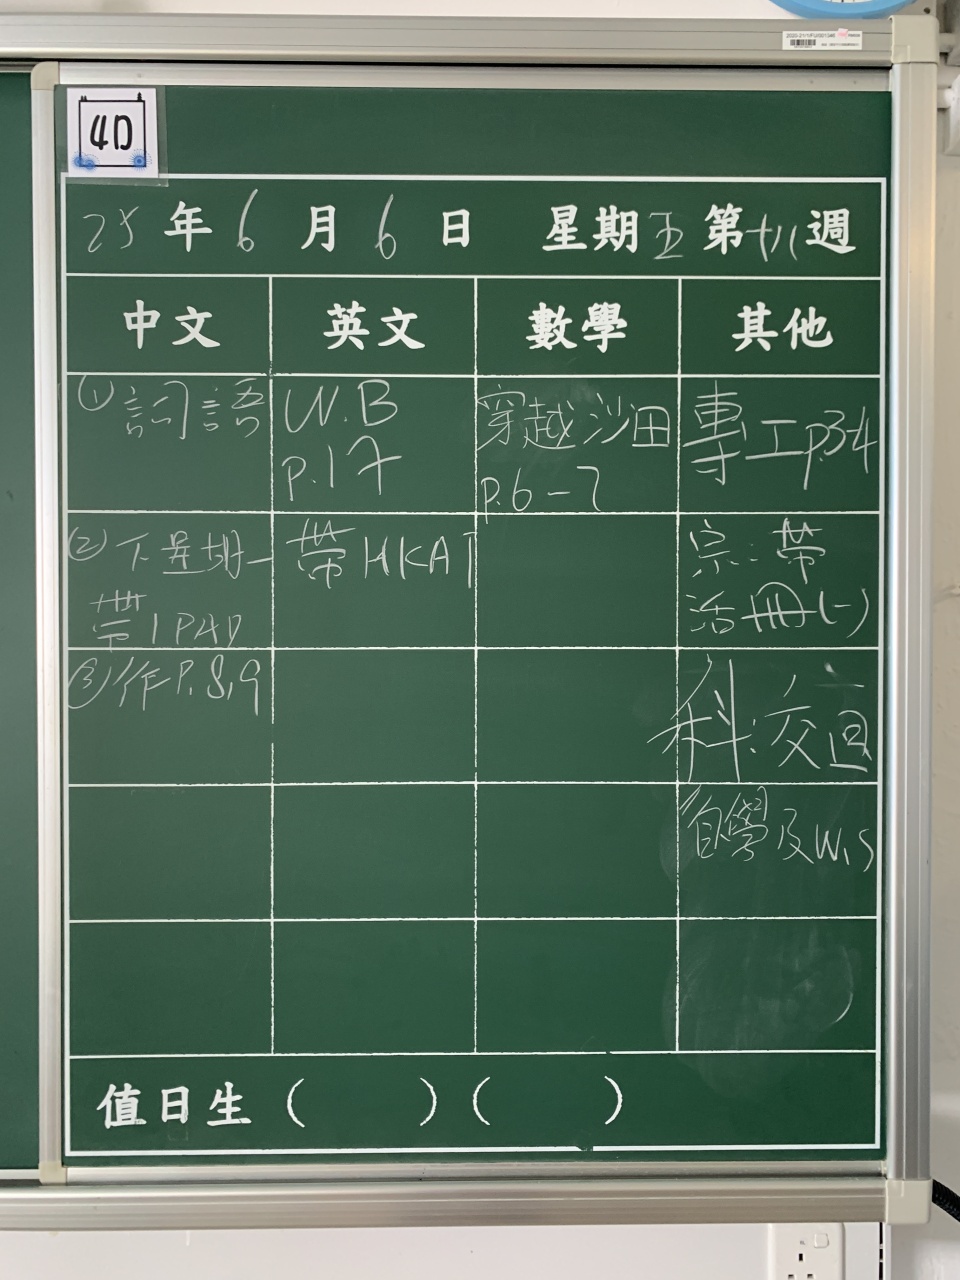 4D
25年6月6日 星期五第十八週
中文 英文 數學 其他
① 詞語
W.B
p.17
穿越沙田
p.6-7
專工p.3-4
② 下星期一
帶IPAD
帶HKAT
宗:帶
活冊(一)
③作P.8,9
科:交回
自學及W.S
值日生 ( ) ( )